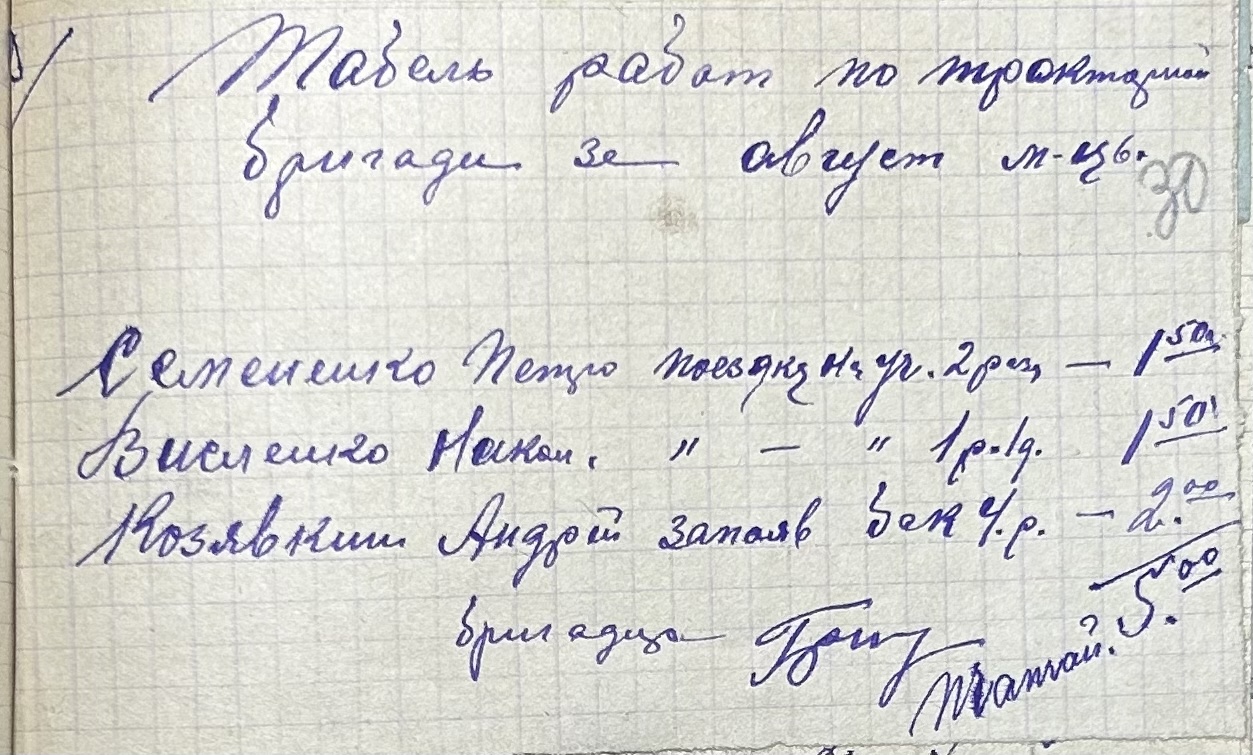 Табель работ по тракторной
бригади за август м-ць.
30
Семененко Петро поездку на уч. 2 раз — 1 50
Василенко " — " 1 р. 1 д. 1 50
Козявкин Андрей запаяв бак 4. р. — 2.00
5.00
бригадир